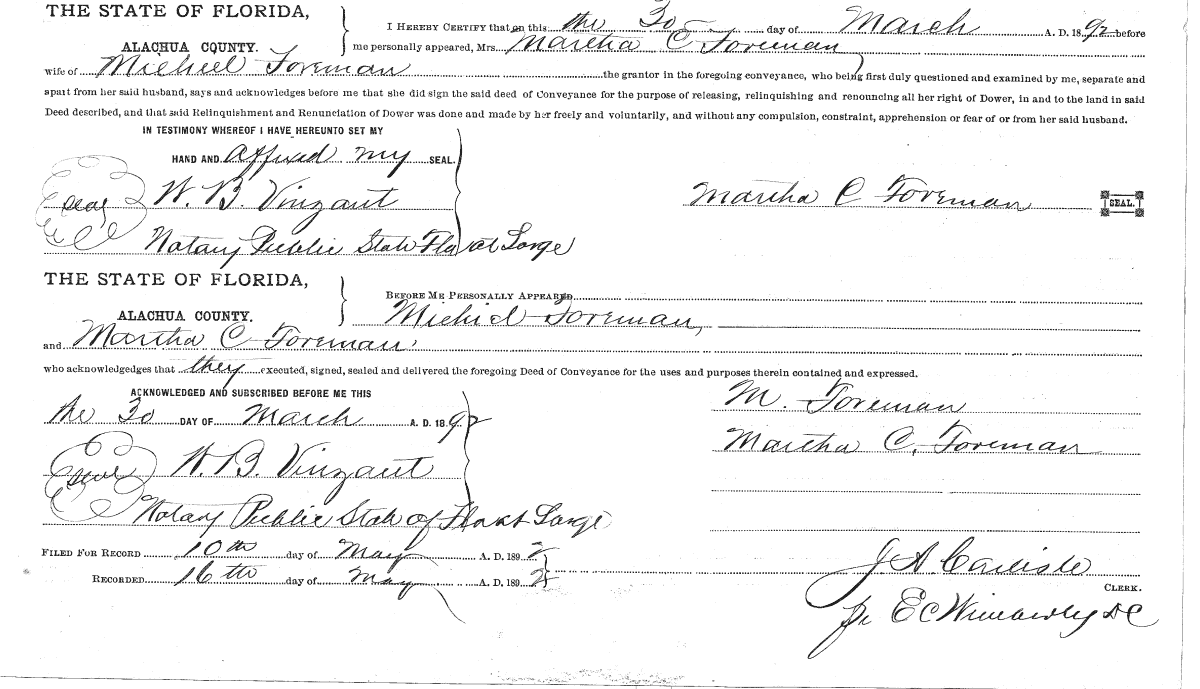 THE STATE OF FLORIDA,
I HEREBY CERTIFY that on this the 30 day of March A. D. 1892 before
ALACHUA COUNTY. me personally appeared, Mrs. Martha C Foreman
wife of Micheel Foreman the grantor in the foregoing conveyance, who being first duly questioned and examined by me, separate and
apart from her said husband, says and acknowledges before me that she did sign the said deed of Conveyance for the purpose of releasing, relinquishing and renouncing all her right of Dower, in and to the land in said
Deed described, and that said Relinquishment and Renunciation of Dower was done and made by her freely and voluntarily, and without any compulsion, constraint, apprehension or fear of or from her said husband.
IN TESTIMONY WHEREOF I HAVE HEREUNTO SET MY
HAND AND affixed my SEAL.
seal W. B. Vinzant Martha C Foreman SEAL.
Notary Public State Fla at Large
THE STATE OF FLORIDA,
BEFORE ME PERSONALLY APPEARED
ALACHUA COUNTY. Michiel Foreman,
and Martha C Foreman
who acknowledgedges that they executed, signed, sealed and delivered the foregoing Deed of Conveyance for the uses and purposes therein contained and expressed.
ACKNOWLEDGED AND SUBSCRIBED BEFORE ME THIS
M. Foreman
the 30 DAY OF March A. D. 1892
Martha C. Foreman
seal W. B. Vinzant
Notary Public State of Fla at Large
FILED FOR RECORD 10th day of May A. D. 1892
J A Carlisle
RECORDED 16th day of May A. D. 1892
CLERK.
pr E C Wimberly DC